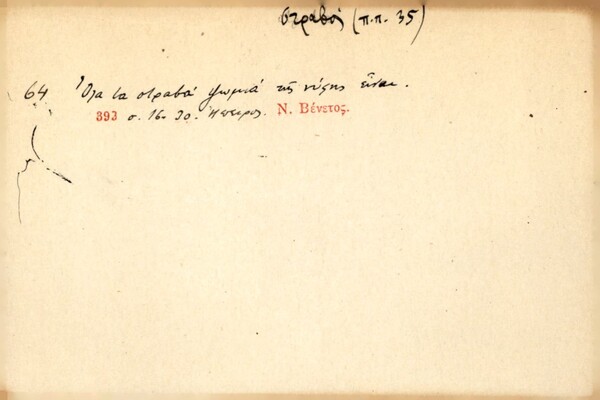 στραβός (π.π. 35)
64 Ὅλα τα στραβά ψωμιά της νύφης εἶναι.
393 σ. 16. 30. Ήπειρος. Ν. Βένετος.